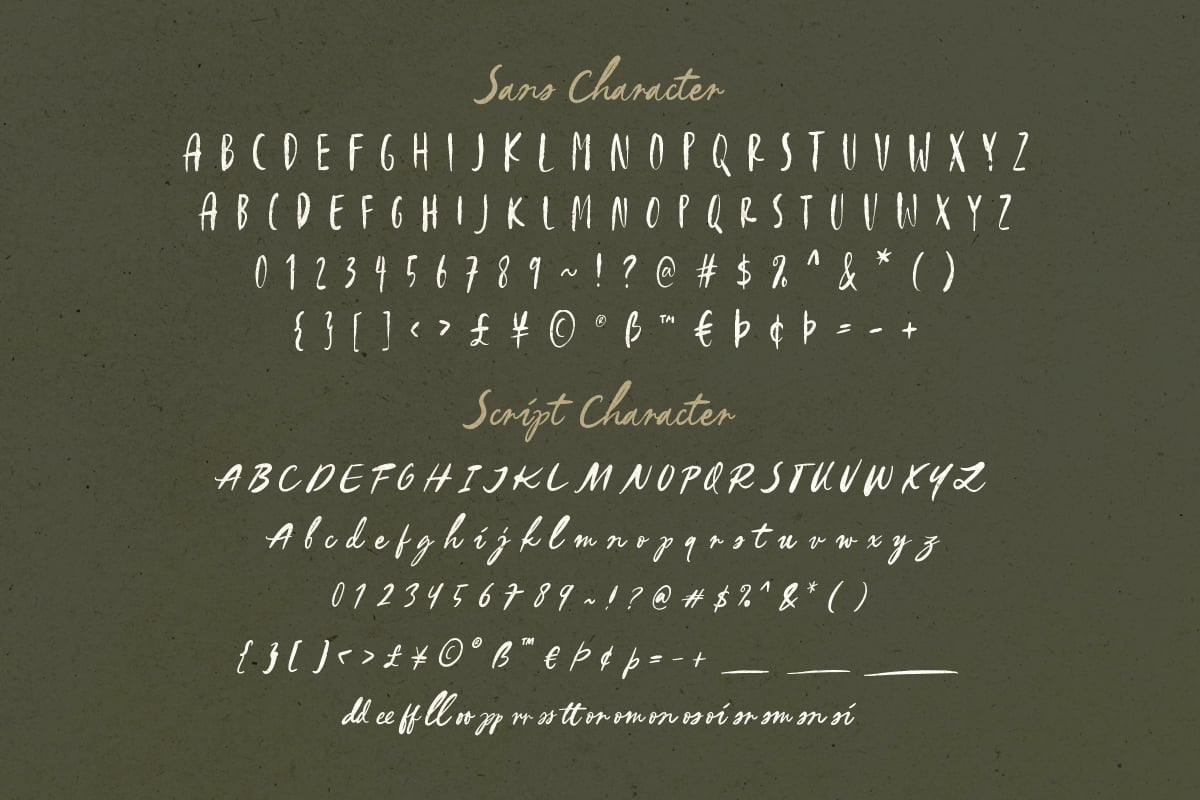 Sans Character
A B C D E F G H I J K L M N O P Q R S T U V W X Y Z
A B C D E F G H I J K L M N O P Q R S T U V W X Y Z
0 1 2 3 4 5 6 7 8 9 ~ ! ? @ # $ % ^ & * ( )
{ } [ ] < > £ ¥ © ® ß ™ € Þ ¢ Þ = - +
Script Character
A B C D E F G H I J K L M N O P Q R S T U V W X Y Z
A b c d e f g h i j k l m n o p q r s t u v w x y z
0 1 2 3 4 5 6 7 8 9 ~ ! ? @ # $ % ^ & * ( )
{ } [ ] < > £ ¥ © ® ß ™ € Þ ¢ þ = - +
dd ee ff ll oo pp rr ss tt or om on os oi sr sm sn si